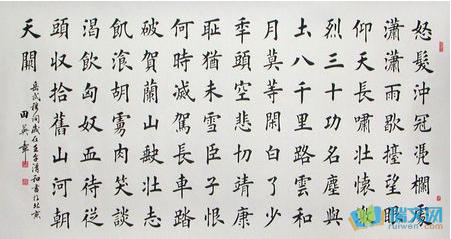 怒髮沖冠凭欄處
瀟瀟雨歇擡望眼
仰天長嘯壯懷激
烈三十功名塵與
土八千里路雲和
月莫等閒白了少
年頭空悲切靖康
恥猶未雪臣子恨
何時滅駕長車踏
破賀蘭山缺壯志
飢湌胡虜肉笑談
渴飲匈奴血待從
頭収拾舊山河朝
天闕
岳武穆詞歲在壬午清和書於北京
田英章
瑞文网
ruiwen.com